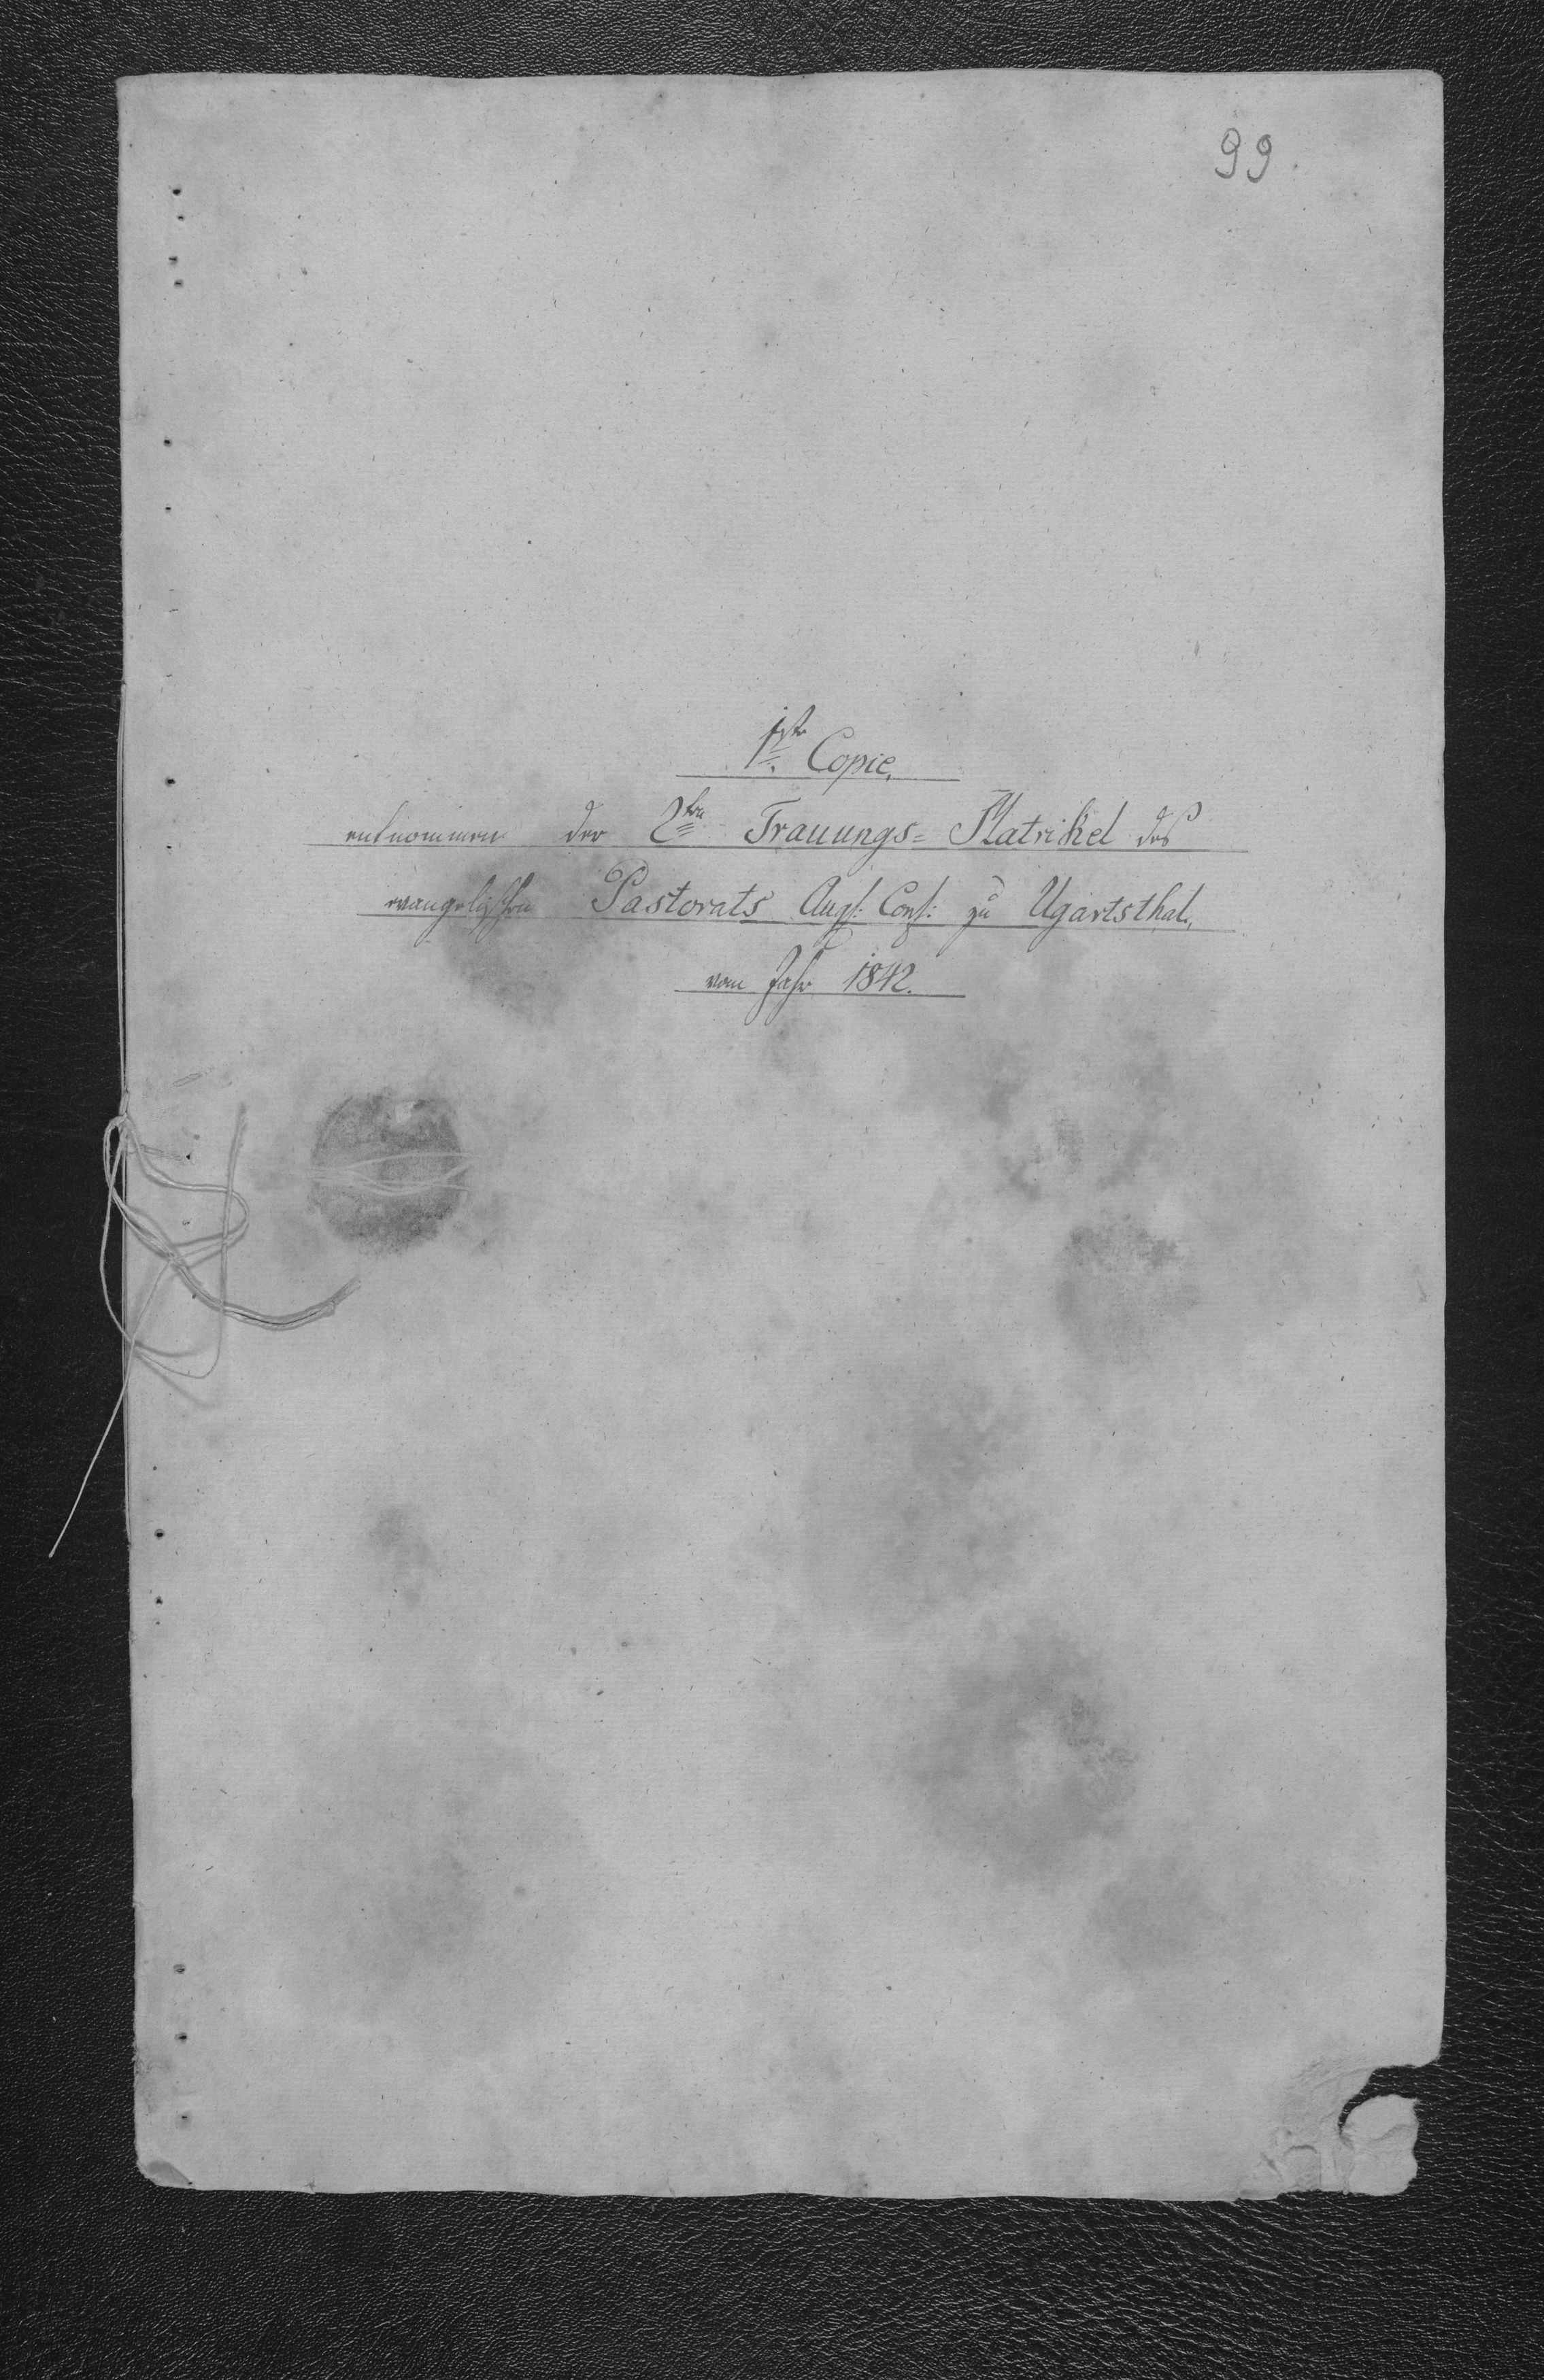 99.
1ste Copie,
entnommen der 2ten Trauungs= Matrikel des
evangelischen Pastorats Augs: Conf: zu Ugartsthal,
vom Jahr 1842.